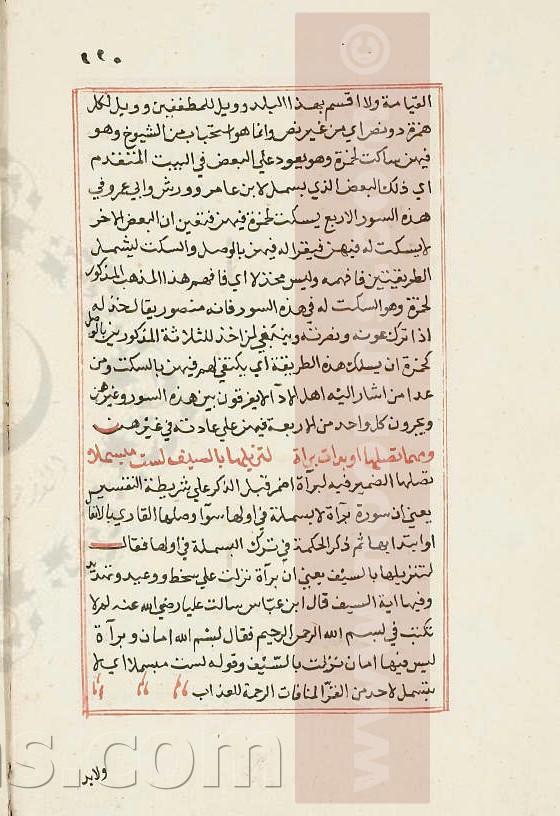 ٢٢٠
القيامة ولا اقسم بهذا البلد وويل للمطففين وويل لكل
همزة دون نص اي من غير نص وانما هو استحباب من الشيوخ وهو
فيهن ساكت لحمزة وهو يعود علي البعض في البيت المتقدم
اي ذلك البعض الذي يسمل لابن عامر وورش وابي عمرو في
هذه السور الاربع يسكت لحمزة فيهن فتعين ان البعض الاخر
لا يسكت له فيهن فيقرا له فيهن بالوصل والسكت ليشمل
الطريقيتين فافهمه وليس مخذلا اي فافهم هذا المذهب المذكور
لحمزة وهو السكت له في هذه السور فانه منصور يقال خذله
اذا ترك عونه ونصرته وينبغي لمن اخذ للثلاثة المذكورين بالوصل
كحمزة ان يسلك هذه الطريقة اي يكتفي لهم فيهن بالسكت ومن
عدا من اشار اليه اهل الادآ لا يفرقون بين هذه السور وغيرهن
ويجرون كل واحد من الاربعة فيهن علي عادته في غيرهن
ومهما تصلها او بدات براة لتنزيلها بالسيف لست مبسملا
تصلها الضمير فيه لبراة اضمر قبل الذكر علي شريطة التفسير
يعني ان سورة برآة لا بسملة في اولها سوآ وصلها القاري بالانفال
او ابتدا بها ثم ذكر الحكمة في ترك البسملة في اولها فقال
لتنزيلها بالسيف يعني ان برآة نزلت علي سخط ووعيد وتهديد
وفيها اية السيف قال ابن عباس سالت عليا رضي الله عنه لم لا
تكتب في بسم الله الرحمن الرحيم فقال لبسم الله امان وبرآة
ليس فيها امان نزلت بالسيف وقوله لست مبسملا اي لا
يبسمل لاحد من القرآ لمنافات الرحمة للعذاب
ولابد
©
www.
ns.com